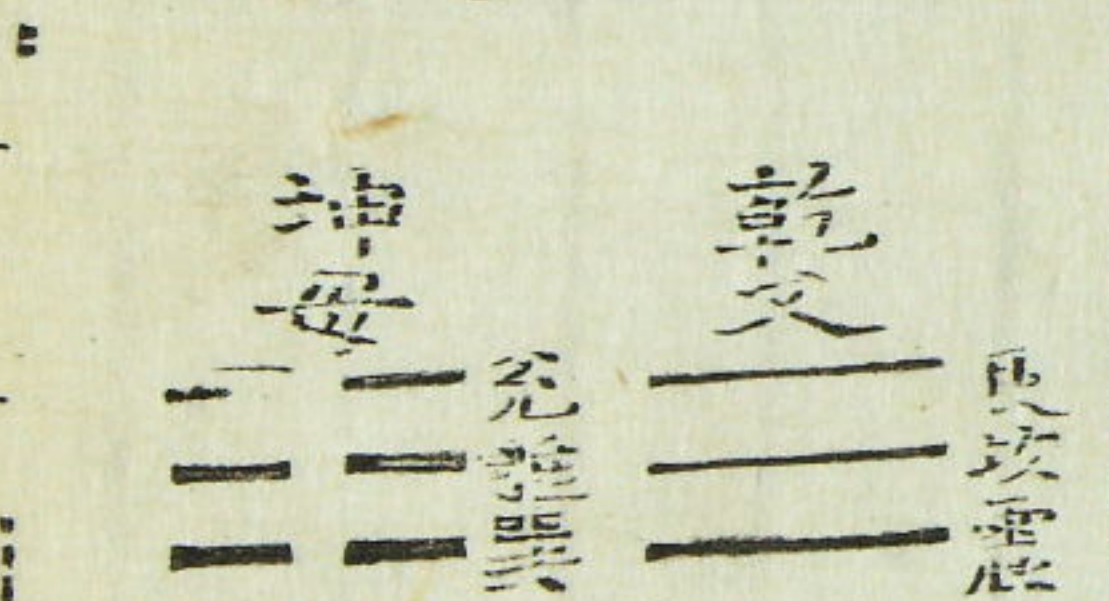 乾父
艮坎震
坤母
兌離巽